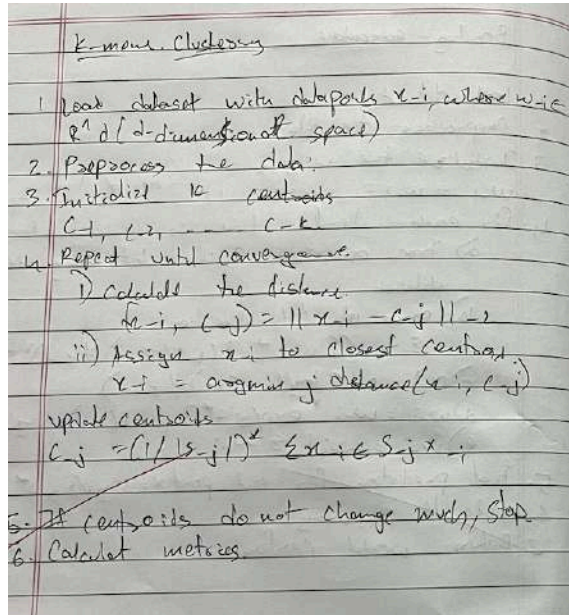 K-means Clustering
1 Load dataset with datapoints x-i, where x-i ∈
R^d (d-dimensional space)
2. Preprocess the data.
3. Initialize K centroids
C-1, C-2, ---- C-k.
4. Repeat until convergence.
i) Calculate the distance
(x-i, c-j) = || x-i - c-j || -2
ii) Assign x-i to closest centroid
r-i = argmin j distance(x-i, c-j)
update centroids
C-j = (1/|S-j|)* Σx-i ∈ S-j x-i
5. If centroids do not change much, stop
6. Calculat metrics.